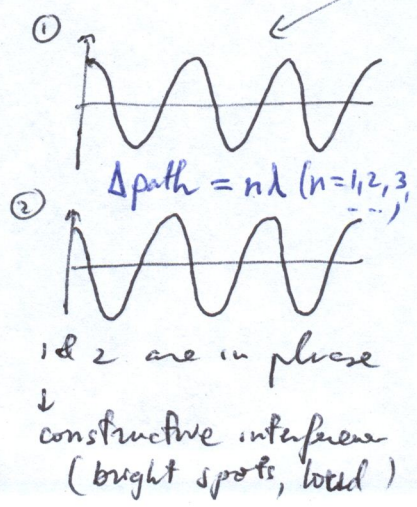 ①
Δpath = nλ (n=1,2,3, ...)
②
1 & 2 are in phase
↓
constructive interference
(bright spots, loud)